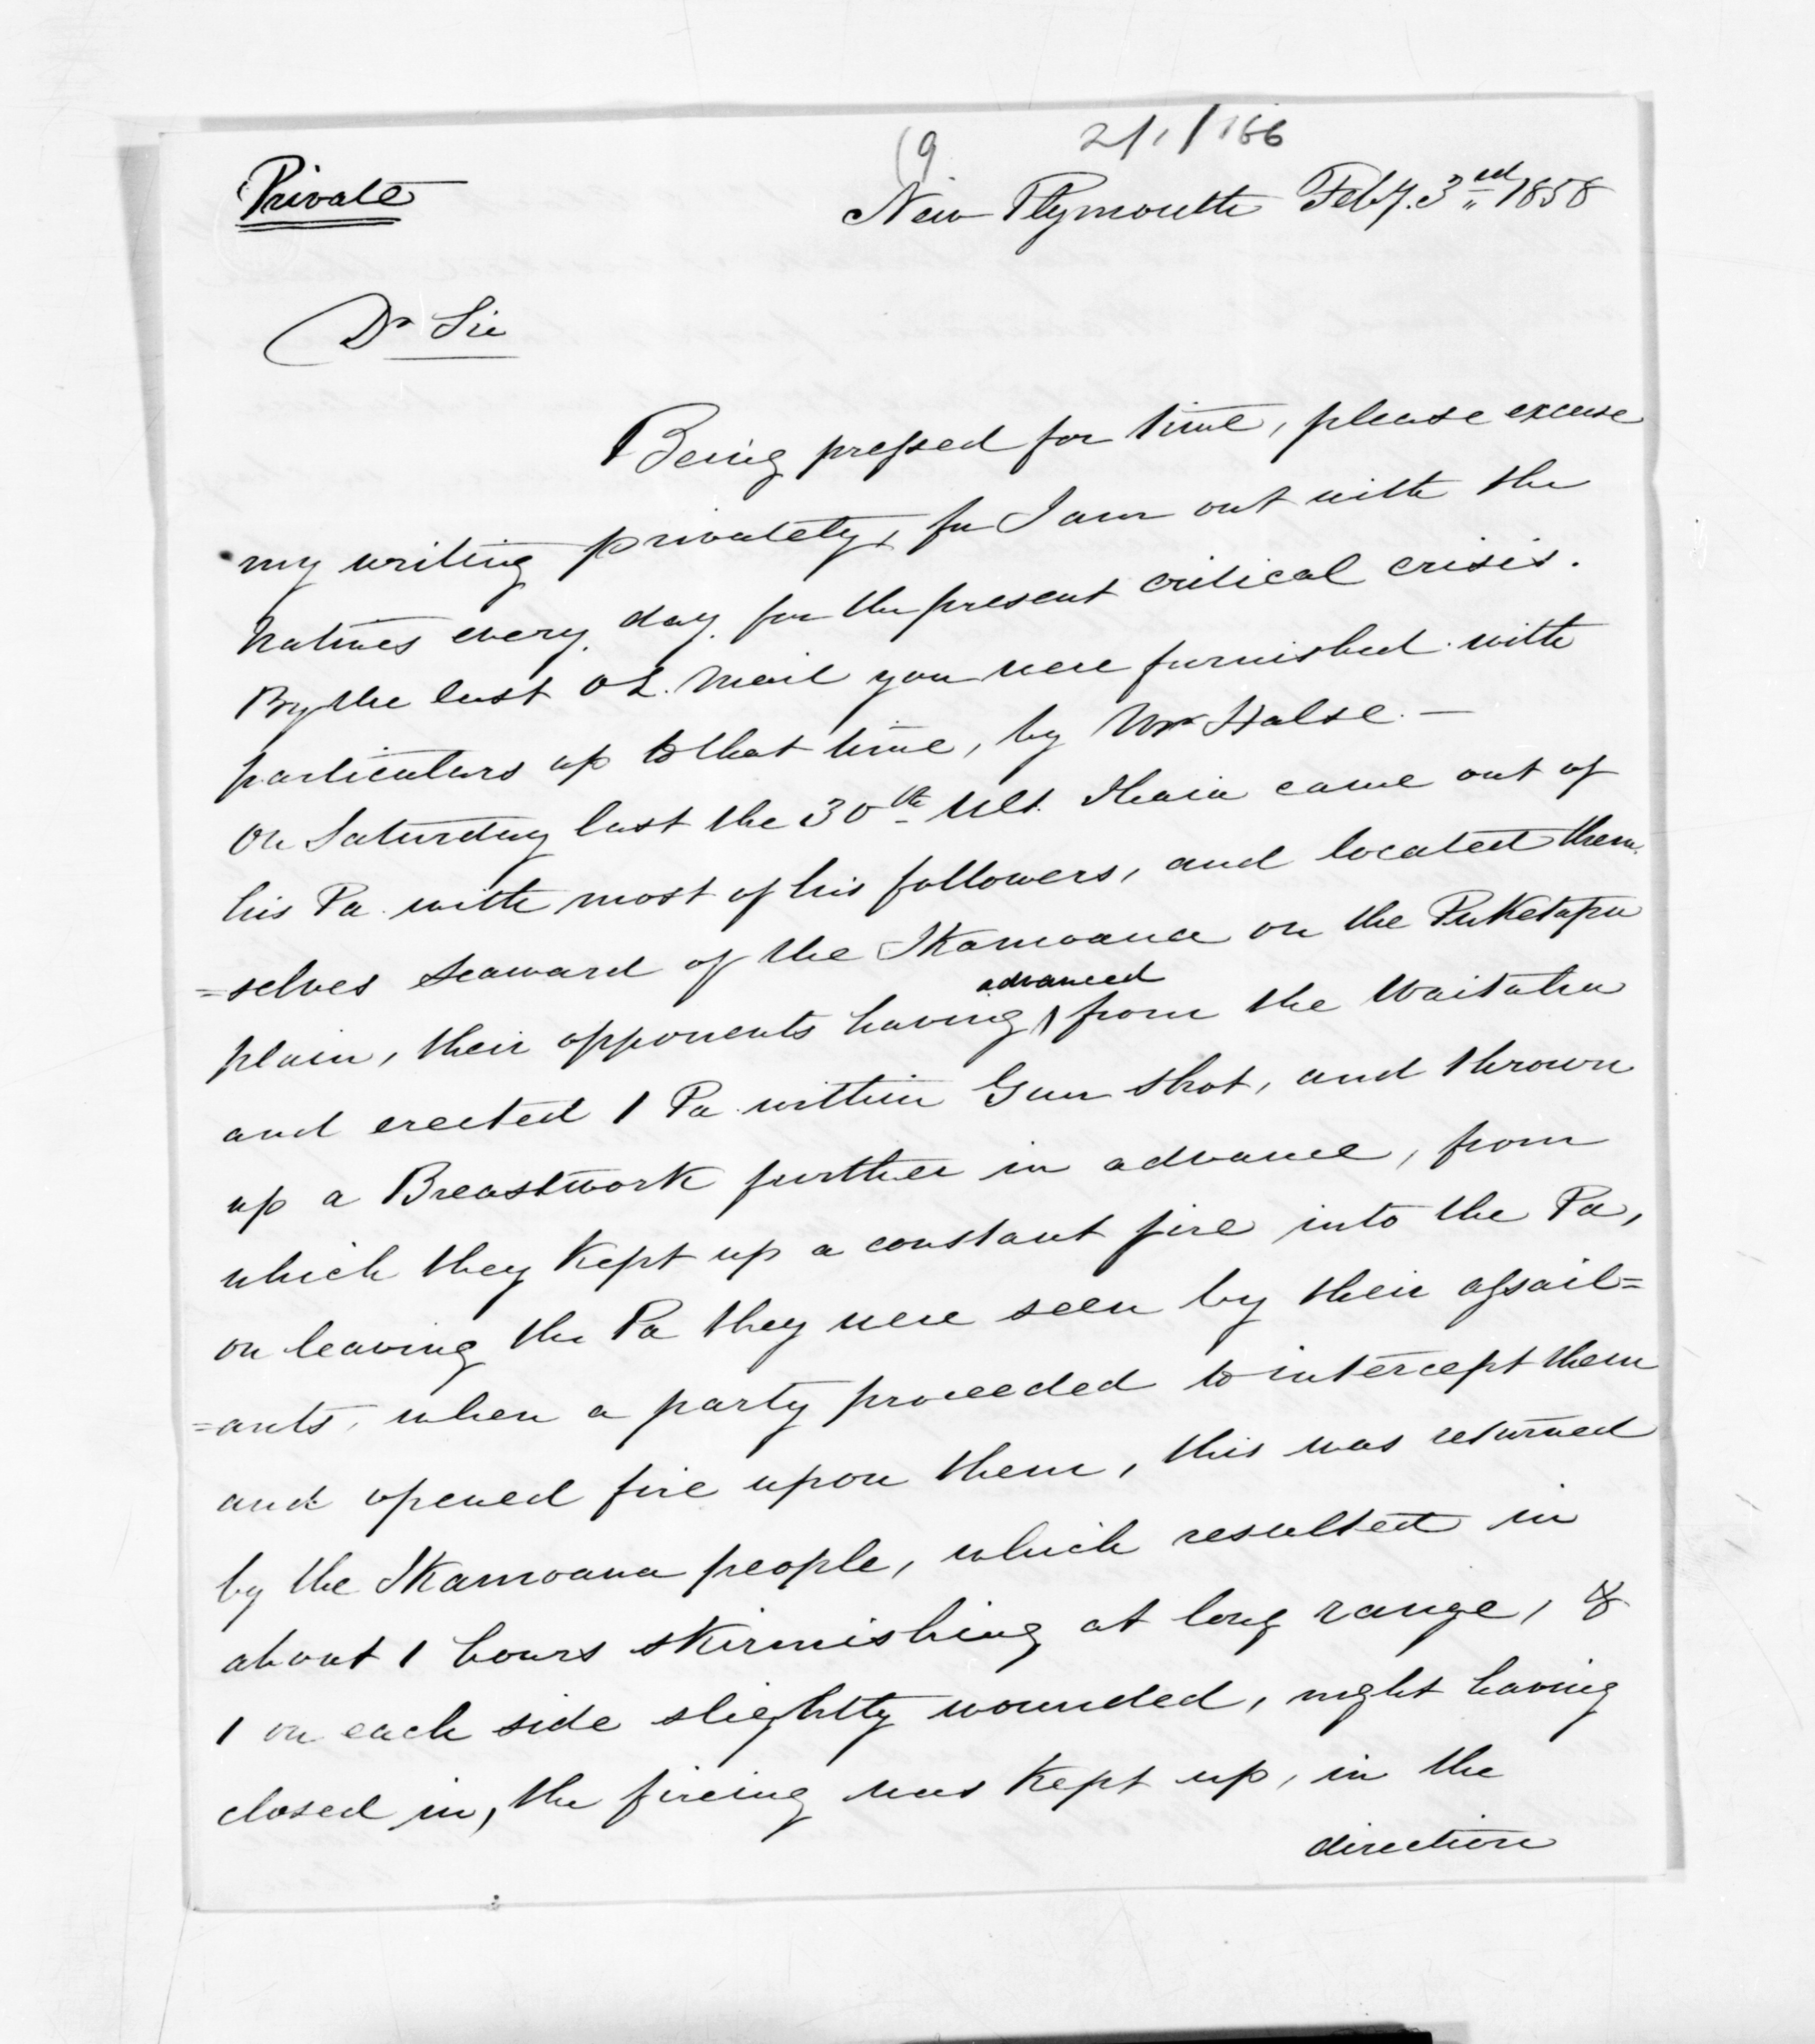 (9 2/1/166
Private
New Plymouth Feby. 3rd 1858
Dr Sir
Being pressed for time, please excuse
my writing privately, for I am out with the
Natives every day for the present critical crisis.
By the last OL. Mail you were furnished with
particulars up to that time, by Mr Halse. —
On Saturday last the 30th Ult. Ihaia came out of
his Pa with most of his followers, and located them
=selves seaward of the Ikamoana on the Puketapu
plain, their opponents having advanced from the Waitaha
and erected 1 Pa within Gun shot, and thrown
up a Breastwork further in advance, from
which they kept up a constant fire into the Pa,
on leaving the Pa they were seen by their assail=
=ants, when a party proceeded to intercept them
and opened fire upon them, this was returned
by the Ikamoana people, which resulted in
about 1 hours skirmishing at long range, &
1 on each side slightly wounded, night having
closed in, the fireing was kept up, in the
direction